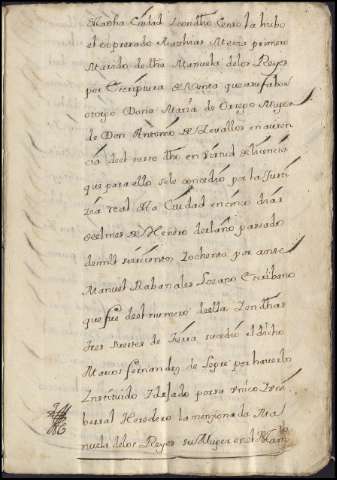 dha Ciudad Leondho Censo la hubo
el expresado Mathias Mexia primero
Marido de dha Manuela delos Reyes
por Escriptura de Venta que a su fabor
otorgo Doña María de Orrego Muger
de Don Antonio de Zevallos en ausen
cia del susso dho en virtud de liçencia
que para ello sele conzedio por la Justi
zia real de dha Ciudad en cinco dias
del mes de Henero del año passado
de mill seiscientos Y ochenta por ante
Manuel Mabanales Lozano Escribano
que fue del numero de ella Y en dhas
tres suertes de tierra suzedio el dicho
Marcos fernandez de Lepre por haverlo
Instituido Y dejado por su Vnico Vni
bersal Heredero la menzionada Ma
nuela delos Reyes su Muger en el